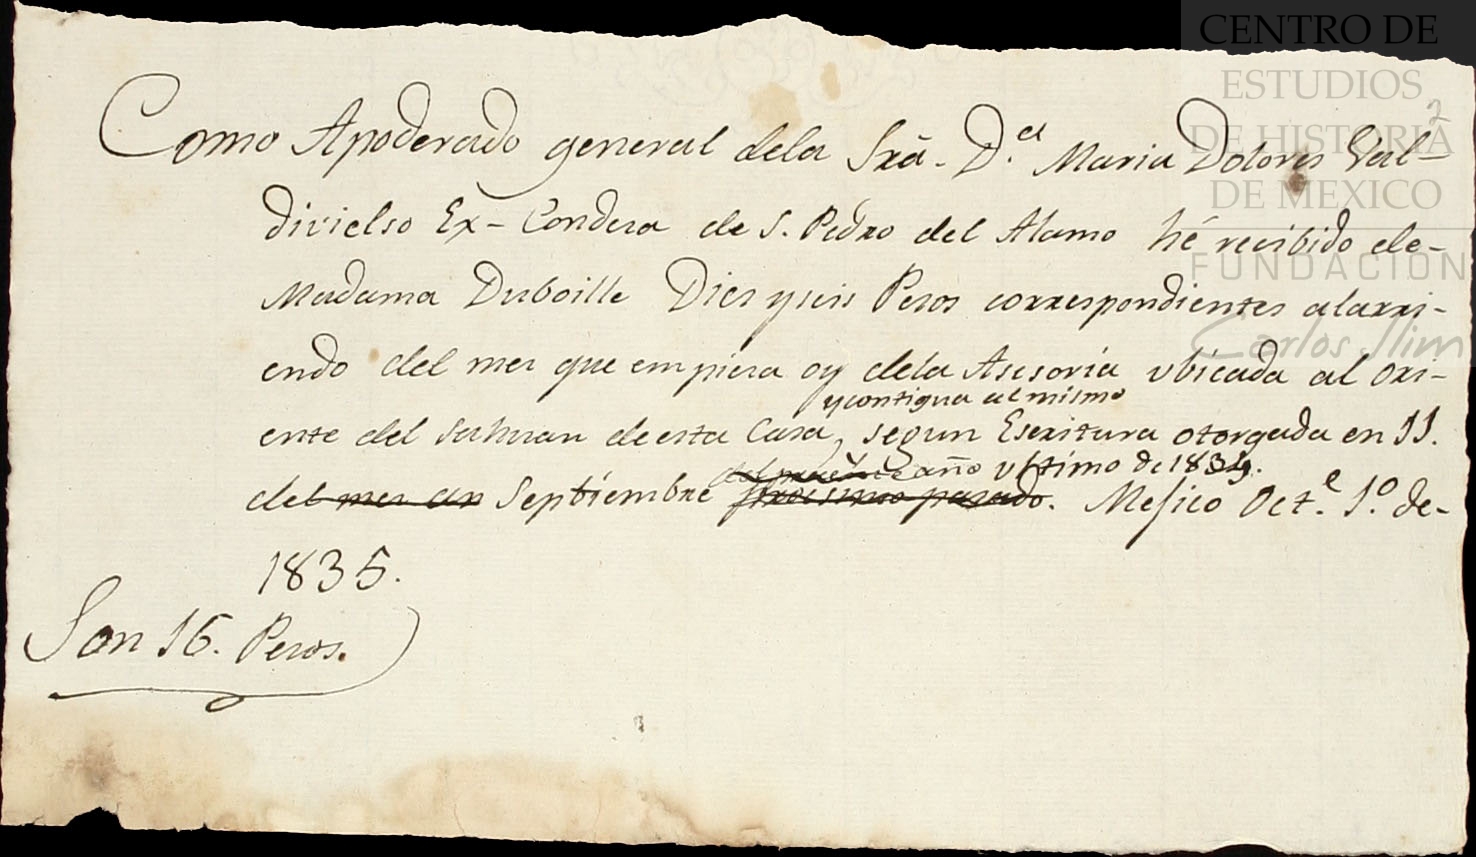 CENTRO DE
ESTUDIOS
DE HISTORIA
DE MEXICO
FUNDACIÓN
Carlos Slim
2
Como Apoderado general dela Srã. D.ª Maria Dolores Val-
divielso Ex-Condesa de S. Pedro del Alamo hé recibido de-
Madama Duboille Dies y seis Pesos correspondientes alarri-
endo del mes que empiesa oy dela Asesoría vbicada al Ori-
y contigua al mismo
ente del Sahuan de esta Casa, segun Escritura otorgada en 11.
del presente año vltimo de 1834.
del mes de Septiembre proximo pasado. Mejico Oct.e 1.o de-
1835.
Son 16. Pesos.